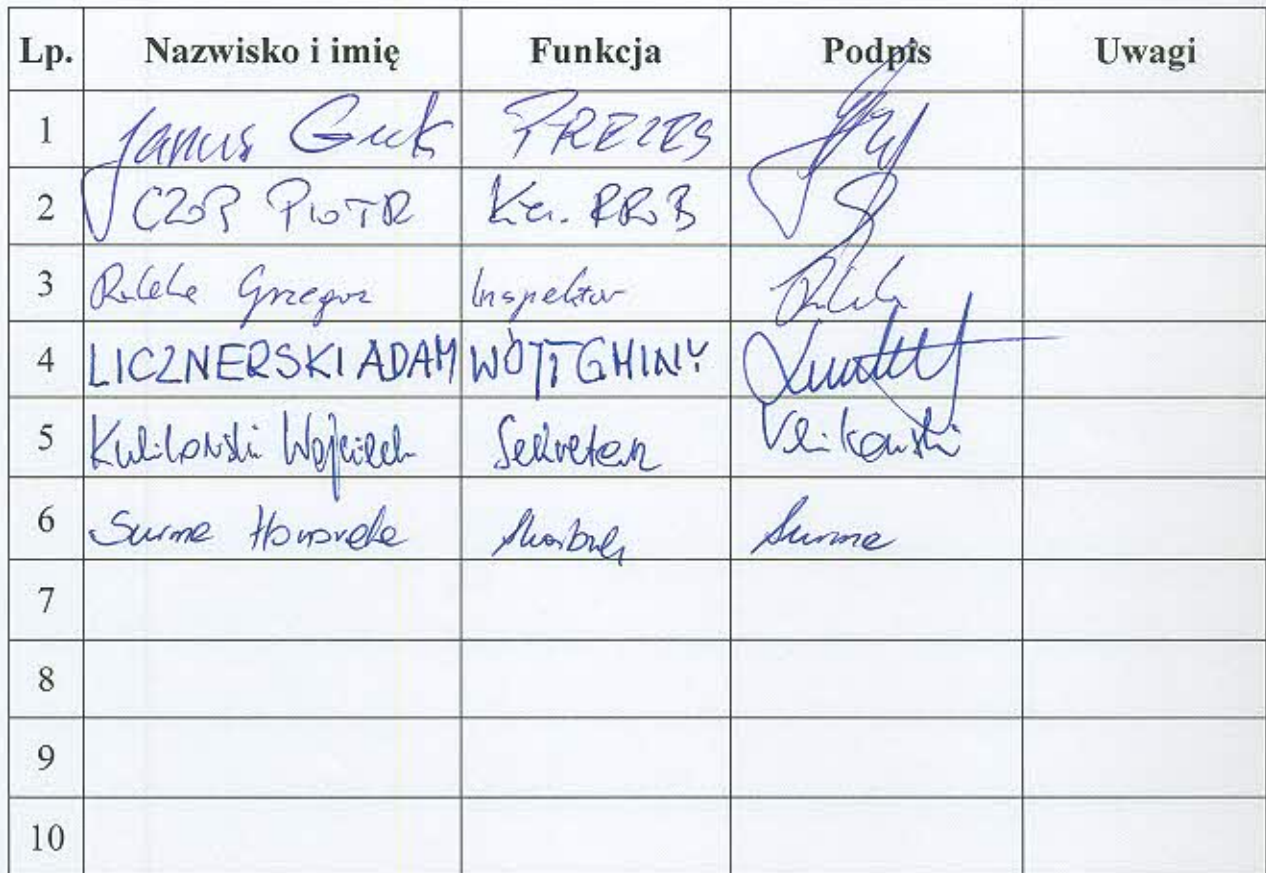 Lp. Nazwisko i imię Funkcja Podpis Uwagi
1 Janus PREZES
2 CZOP PIOTR
3 Grzegorz Inspektor
4 LICZNERSKI ADAM WÓJT GMINY
5 Kulikowski Wojciech Sekretarz Kulikowski
6 Surma Honorata Skarbnik Surma
7
8
9
10